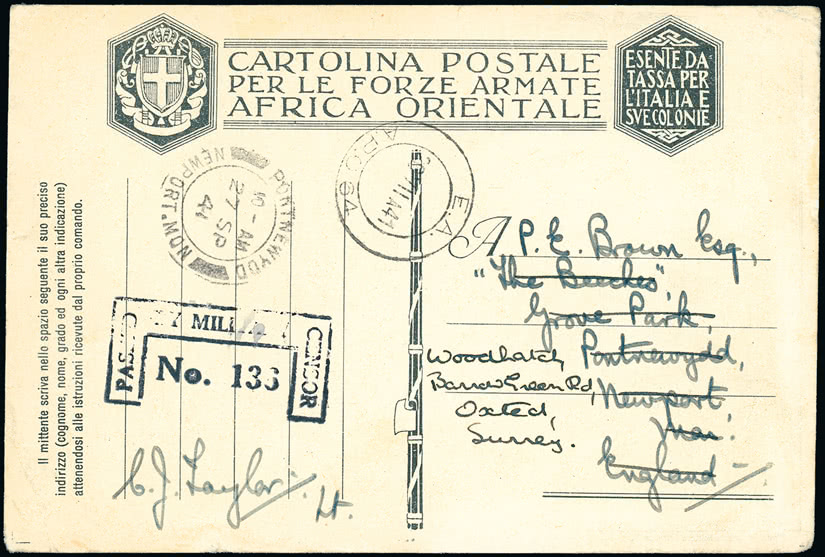 CARTOLINA POSTALE
PER LE FORZE ARMATE
AFRICA ORIENTALE
ESENTE DA
TASSA PER
L'ITALIA E
SVE COLONIE
PONTNEWYDD
NEWPORT. MON
10 - AM
27 SP
41
A.P.O. 
E.A.
Il mittente scriva nello spazio seguente il suo preciso
indirizzo (cognome, nome, grado ed ogni altra indicazione)
attenendosi alle istruzioni ricevute dal proprio comando.
PASSED BY MILITARY CENSOR
No. 133
C. J. Taylor. Lt.
A P. E. Brown Esq.,
"The Beeches",
Grove Park,
Pontnewydd,
Newport
Mon.
England
Woodhatch
Barrow Green Rd,
Oxted,
Surrey.